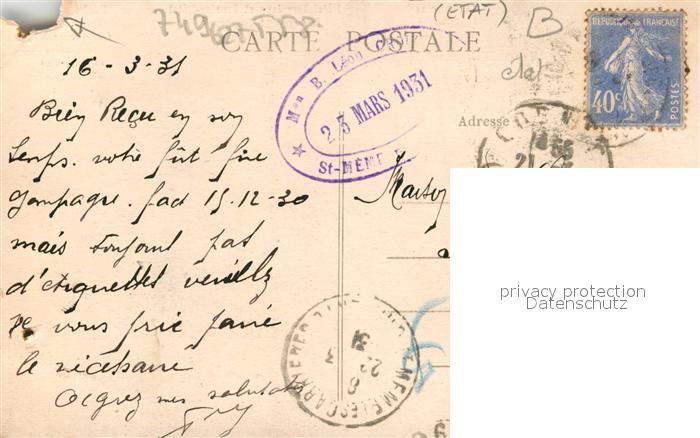 (ETAT)
B
CARTE POSTALE
RÉPUBLIQUE FRANÇAISE
40c
POSTES
16-3-31
Mon B. Léon
23 MARS 1931
St-MÊME
Adresse
Bien Reçu en son
temps. votre fût fine
Champagne. fact 15-12-30
mais toujours pas
d'étiquettes veuillez
je vous prie faire
le nécessaire
Agréez mes salutats
22 3
31
privacy protection
Datenschutz